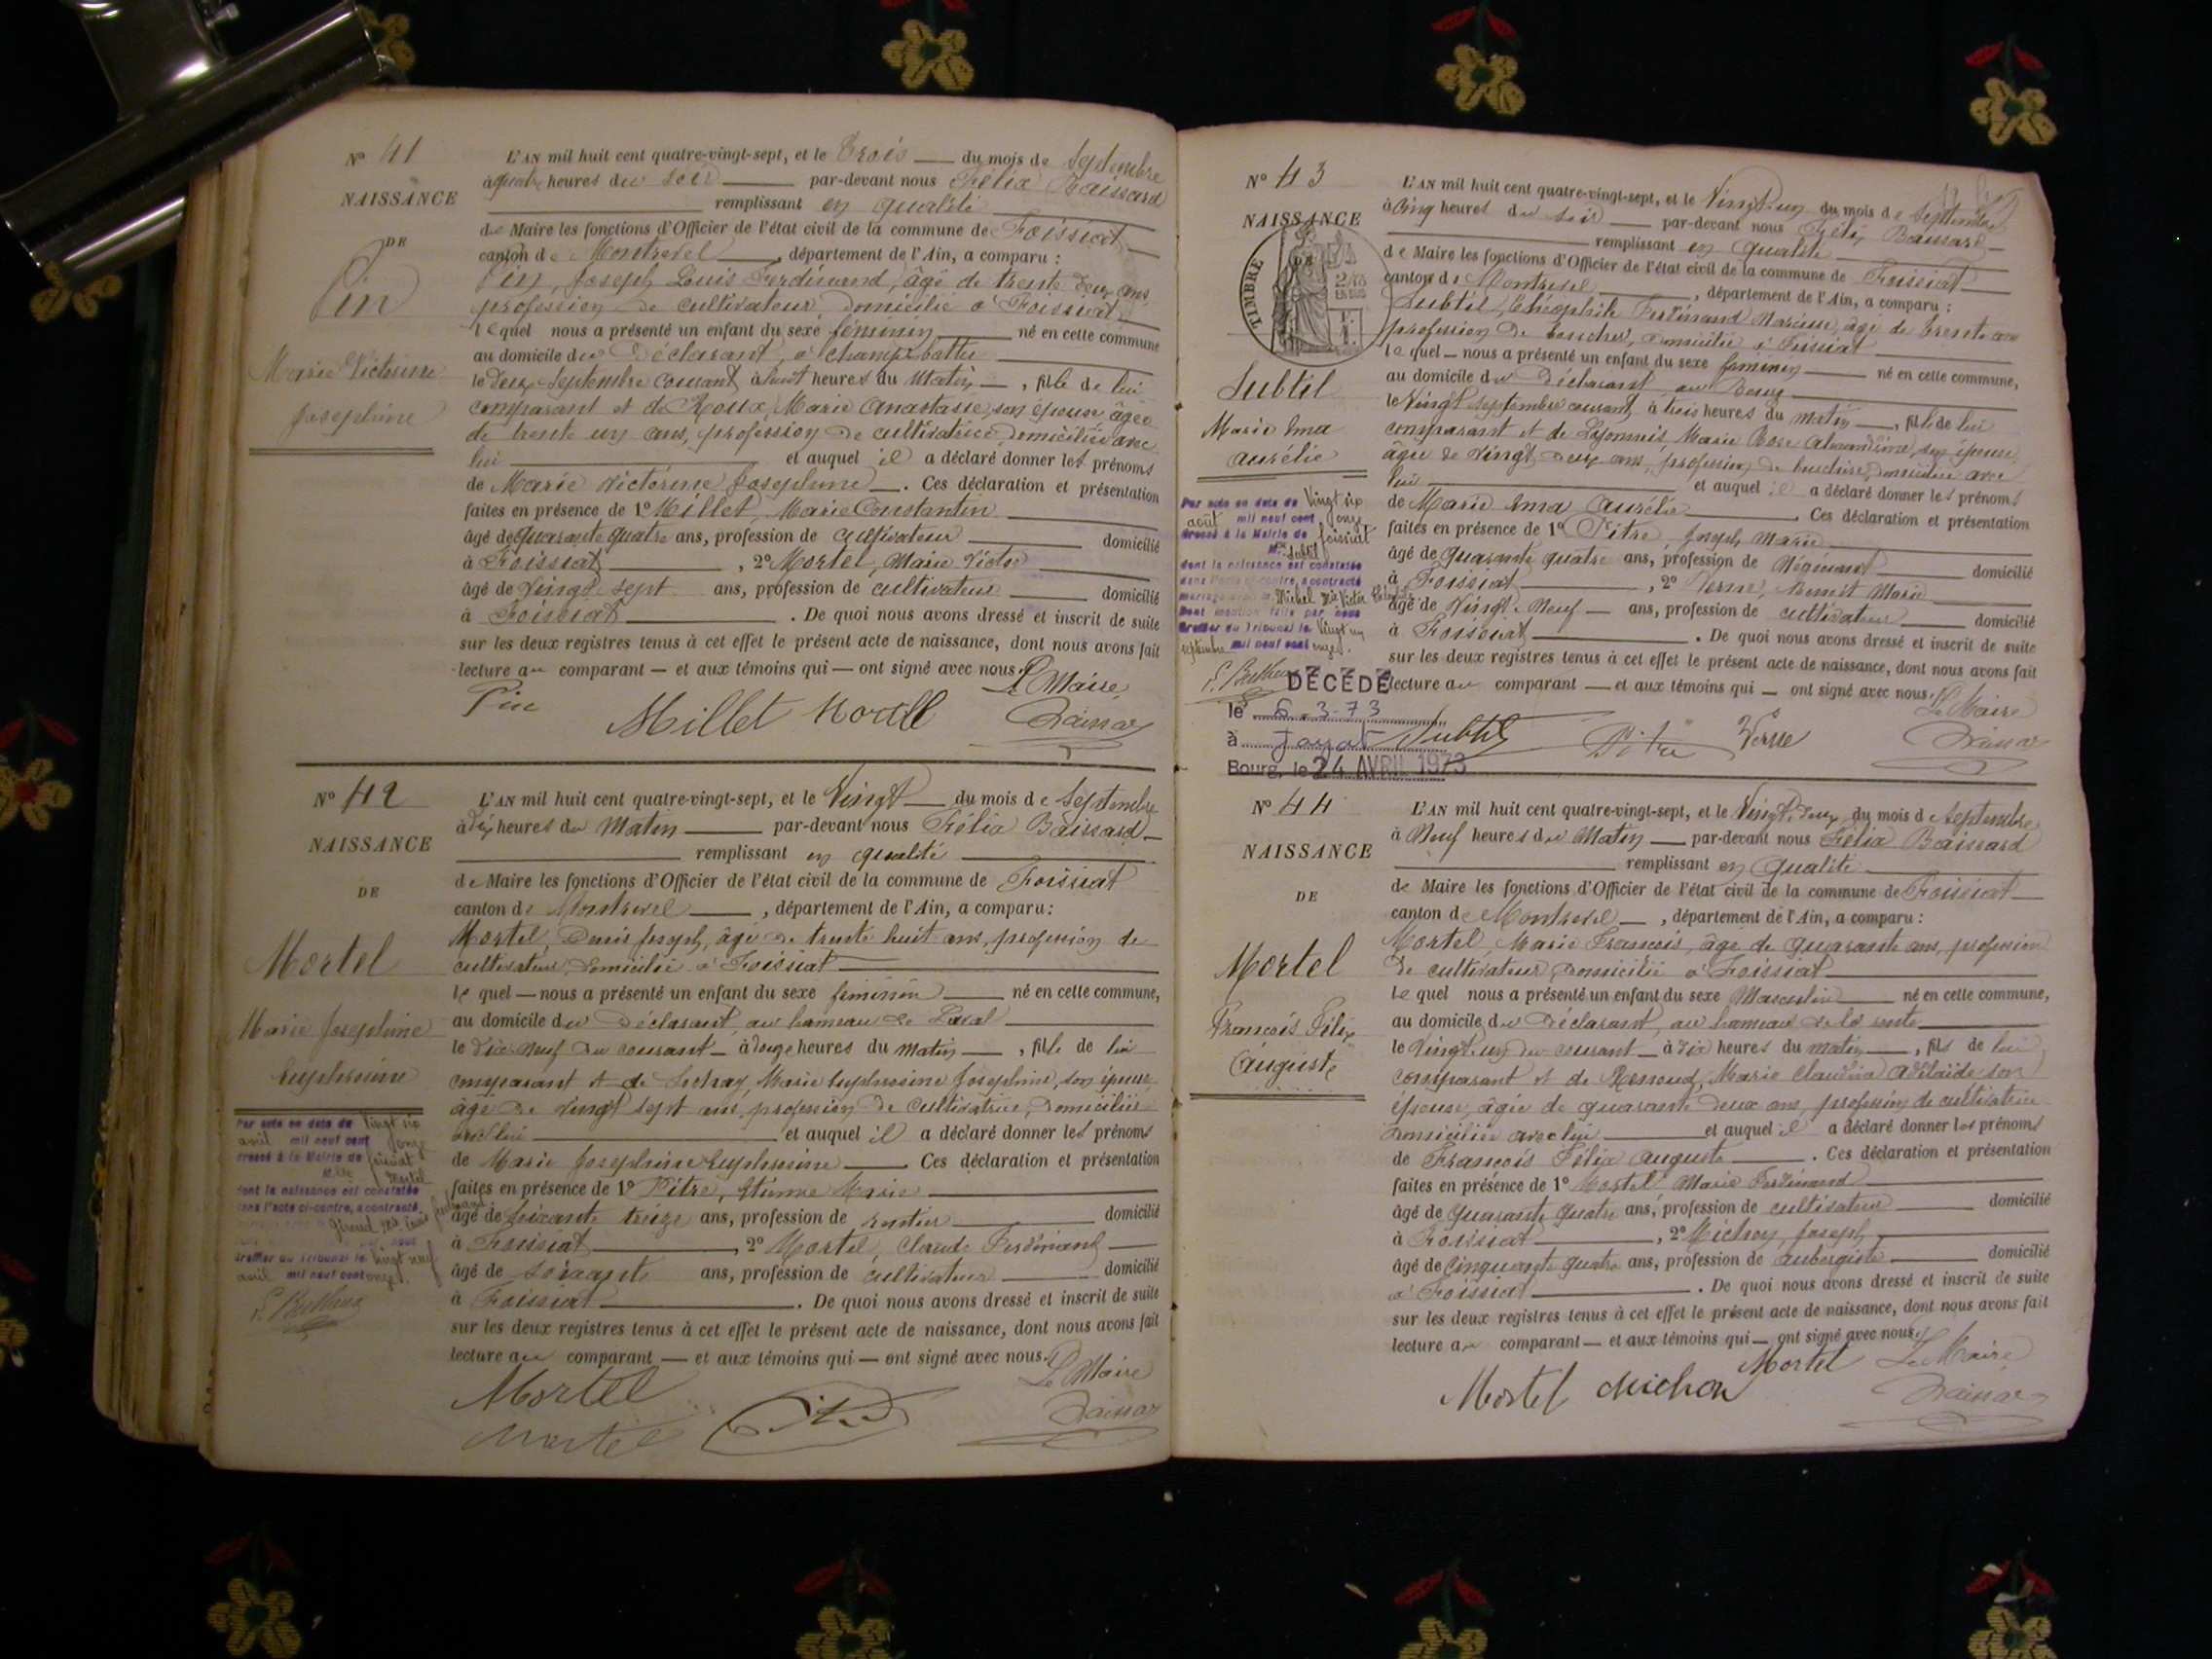 N° 41
NAISSANCE
DE
Pin
Marie Victorine
Josephine
L'AN mil huit cent quatre-vingt-sept, et le Trois du mois de Septembre
à quatre heures du soir par-devant nous Félix Baissard
remplissant en qualité
de Maire les fonctions d'Officier de l'état civil de la commune de Foissiat
canton de Montrevel, département de l'Ain, a comparu :
Pin, Joseph Louis Ferdinand, âgé de trente deux ans,
profession de cultivateur domicilié à Foissiat
lequel nous a présenté un enfant du sexe féminin né en cette commune
au domicile du Déclarant, à champ
le deux Septembre courant, à huit heures du Matin, fille de lui
comparant et de Roux, Marie Anastasie, son épouse âgée
de trente un ans, profession de cultivatrice domiciliée avec
lui et auquel il a déclaré donner les prénoms
de Marie Victorine Josephine. Ces déclaration et présentation
faites en présence de 1° Millet, Marie Constantin
âgé de quarante quatre ans, profession de cultivateur domicilié
à Foissiat, 2° Mortel, Marie Victor
âgé de vingt sept ans, profession de cultivateur domicilié
à Foissiat. De quoi nous avons dressé et inscrit de suite
sur les deux registres tenus à cet effet le présent acte de naissance, dont nous avons fait
lecture au comparant — et aux témoins qui — ont signé avec nous.
Le Maire
Pin Millet
N° 42
NAISSANCE
DE
Mortel
Marie Josephine
Euphrosine
L'AN mil huit cent quatre-vingt-sept, et le Vingt du mois de Septembre
à dix heures du Matin par-devant nous Félix Baissard
remplissant en qualité
de Maire les fonctions d'Officier de l'état civil de la commune de Foissiat
canton de Montrevel, département de l'Ain, a comparu :
Mortel, Denis Joseph, âgé de trente huit ans, profession de
cultivateur, domicilié à Foissiat
lequel — nous a présenté un enfant du sexe féminin né en cette commune,
au domicile du Déclarant, au hameau de
le dix neuf du courant — à douze heures du matin, fille de lui
comparant et de Marie Euphrosine Josephine, son épouse
âgée de vingt sept ans, profession de cultivatrice, domiciliée
avec lui et auquel il a déclaré donner les prénoms
de Marie Josephine Euphrosine. Ces déclaration et présentation
faites en présence de 1° Pitre, Etienne Marie
âgé de soixante treize ans, profession de rentier domicilié
à Foissiat, 2° Mortel, Claude Ferdinand
âgé de soixante ans, profession de cultivateur domicilié
à Foissiat. De quoi nous avons dressé et inscrit de suite
sur les deux registres tenus à cet effet le présent acte de naissance, dont nous avons fait
lecture au comparant — et aux témoins qui — ont signé avec nous.
Le Maire
Mortel
Mortel
Par acte en date du Vingt six
avril mil neuf cent onze
dressé à la Mairie de Foissiat
Mlle Mortel
dont la naissance est constatée
dans l'acte ci-contre, a contracté
Greffier du Tribunal le vingt neuf
avril mil neuf cent onze.
N° 43
NAISSANCE
DE
TIMBRE
Subtil
Marie Ema
Aurélie
L'AN mil huit cent quatre-vingt-sept, et le Vingt-un du mois de Septembre
à cinq heures du soir par-devant nous Félix Baissard
remplissant en qualité
de Maire les fonctions d'Officier de l'état civil de la commune de Foissiat
canton de Montrevel, département de l'Ain, a comparu :
Subtil, Théophile Ferdinand Narcisse, âgé de trente ans
profession de boucher, domicilié à Foissiat
lequel — nous a présenté un enfant du sexe féminin né en cette commune,
au domicile du Déclarant au Bourg
le Vingt septembre courant, à trois heures du matin, fille de lui
comparant et de Lyonnais, Marie Rose Alexandrine, son épouse
âgée de vingt deux ans, profession de bouchère, domiciliée avec
lui et auquel il a déclaré donner les prénoms
de Marie Ema Aurélie. Ces déclaration et présentation
faites en présence de 1° Pitre, Joseph Marie
âgé de quarante quatre ans, profession de Négociant domicilié
à Foissiat, 2° Verne, Benoit Marie
âgé de Vingt Neuf — ans, profession de cultivateur domicilié
à Foissiat. De quoi nous avons dressé et inscrit de suite
sur les deux registres tenus à cet effet le présent acte de naissance, dont nous avons fait
lecture au comparant — et aux témoins qui — ont signé avec nous.
Le Maire
Subtil Pitre Verne
Par acte en date du Vingt six
août mil neuf cent onze
dressé à la Mairie de Foissiat
Subtil
dont la naissance est constatée
dans l'acte ci-contre, a contracté
mariage avec Michel
Dont mention faite par nous
Greffier du Tribunal le Vingt un
septembre mil neuf cent onze.
DÉCÉDÉ
le 6.3.73
à Jayat
Bourg, le 24 AVRIL 1973
N° 44
NAISSANCE
DE
Mortel
François Félix
Auguste
L'AN mil huit cent quatre-vingt-sept, et le Vingt-deux du mois de Septembre
à Neuf heures du Matin par-devant nous Félix Baissard
remplissant en qualité
de Maire les fonctions d'Officier de l'état civil de la commune de Foissiat
canton de Montrevel, département de l'Ain, a comparu :
Mortel, Marie François, âgé de quarante ans, profession
de cultivateur, domicilié à Foissiat
lequel nous a présenté un enfant du sexe Masculin né en cette commune,
au domicile du Déclarant, au hameau de la
le Vingt-un du courant — à dix heures du matin, fils de lui
comparant et de Renoud, Marie Claudine Adélaïde son
épouse, âgée de quarante deux ans, profession de cultivatrice
domiciliée avec lui et auquel il a déclaré donner les prénoms
de François Félix Auguste. Ces déclaration et présentation
faites en présence de 1° Mortel Marie Ferdinand
âgé de quarante quatre ans, profession de cultivateur domicilié
à Foissiat, 2° Michon, Joseph
âgé de cinquante quatre ans, profession de aubergiste domicilié
à Foissiat. De quoi nous avons dressé et inscrit de suite
sur les deux registres tenus à cet effet le présent acte de naissance, dont nous avons fait
lecture au comparant — et aux témoins qui — ont signé avec nous.
Mortel Michon Mortel Le Maire